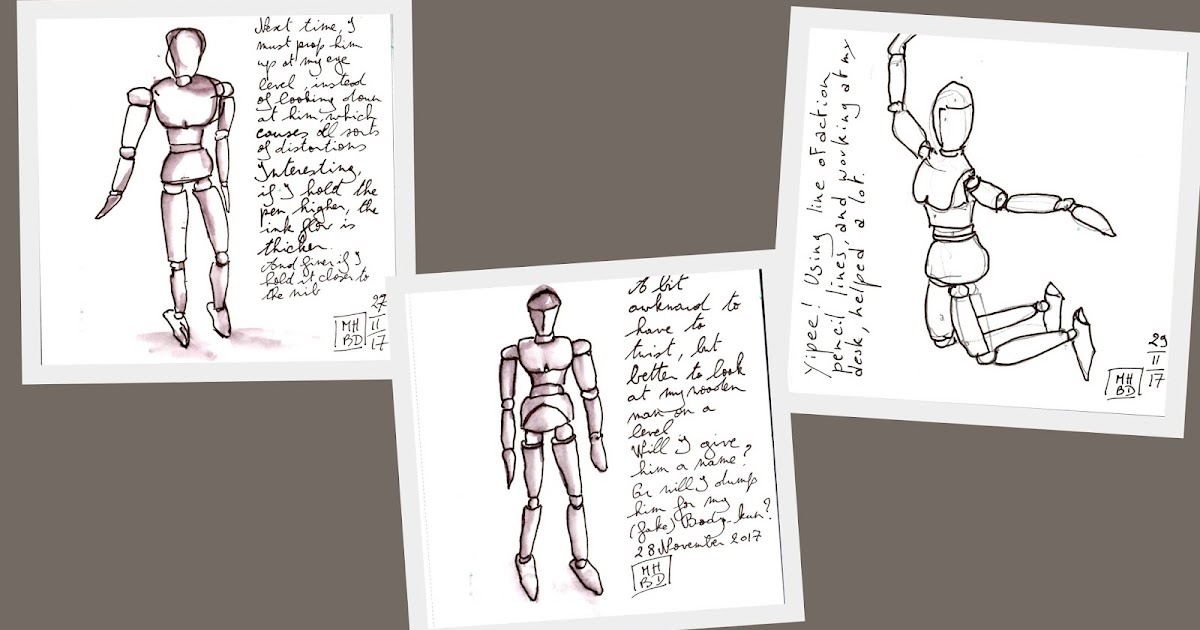 Next time, I
must prop him
up at my eye
level, instead
of looking down
at him, which
causes all sorts
of distortions
Interesting,
if I hold the
pen higher, the
ink flow is
thicker.
And finer if I
hold it closer to
the nib
27
11
17
MH
BD
A bit
awkward to
have to
twist, but
better to look
at my wooden
man on a
level
Will I give
him a name?
Or will I dump
him for my
(fake) Body-kun?
28 November 2017
MH
BD
Yipee! Using line of action
pencil lines, and working at my
desk, helped a lot.
29
11
17
MH
BD